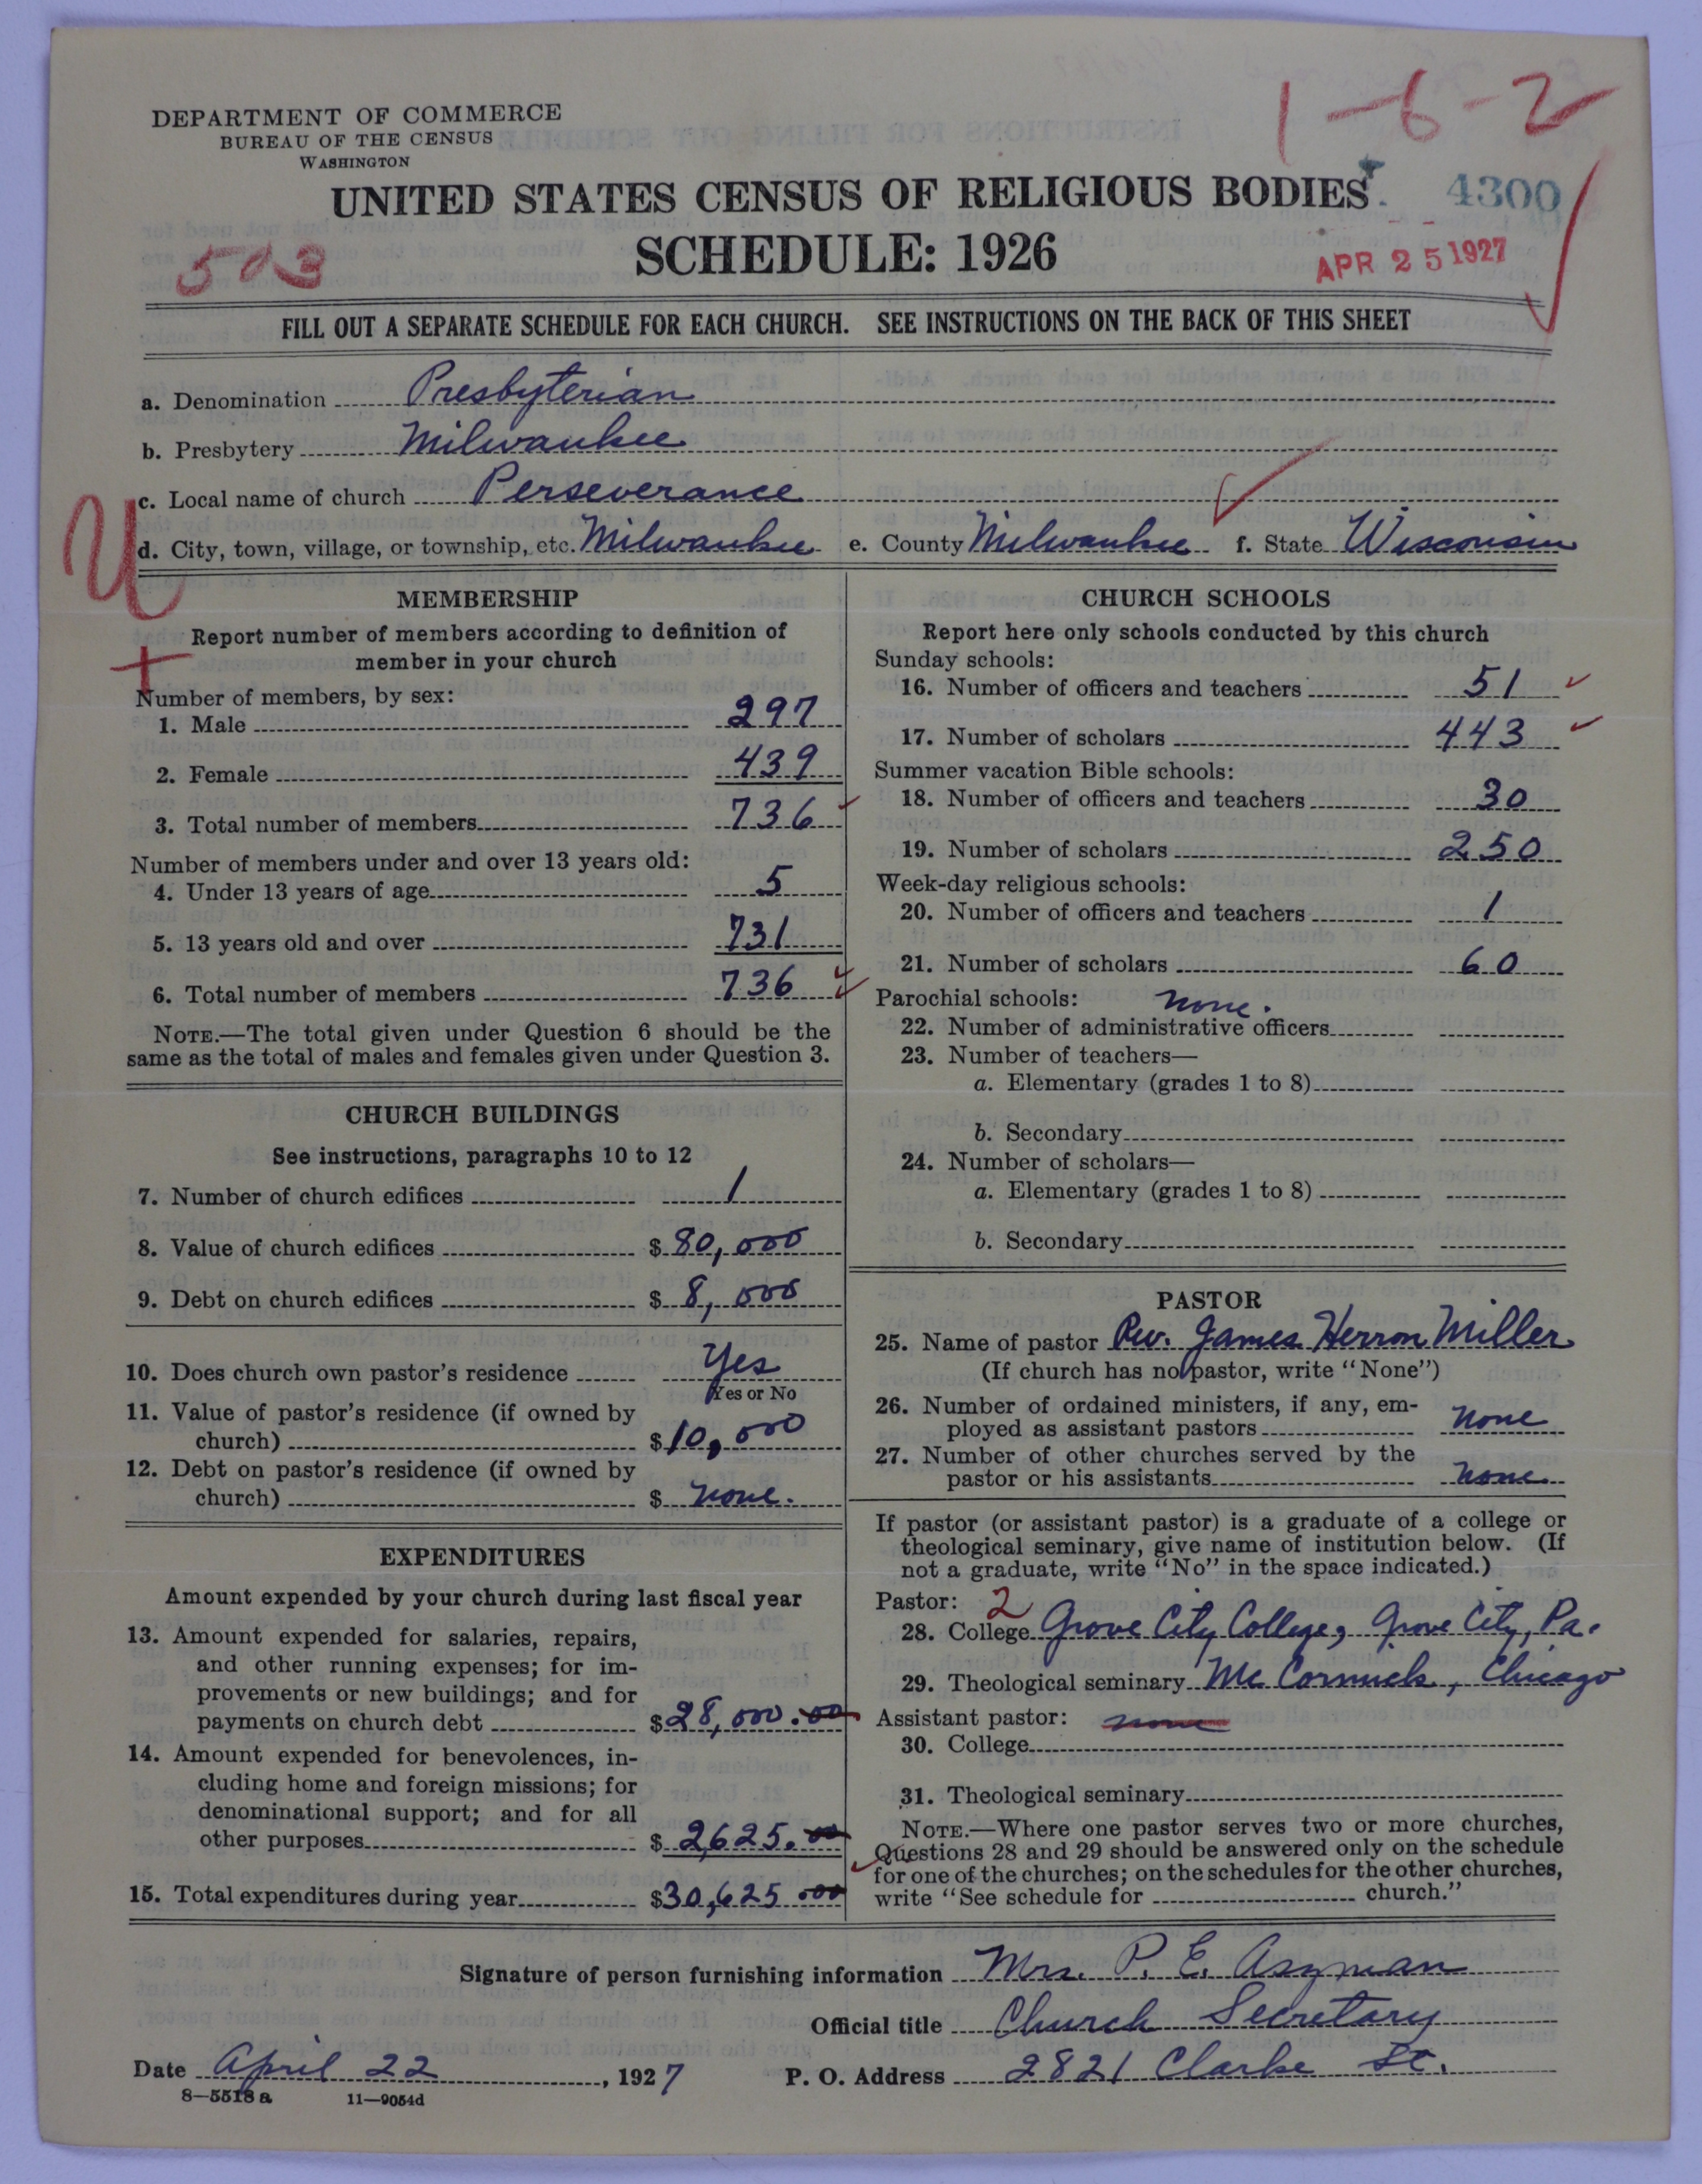 1-6-2
DEPARTMENT OF COMMERCE
BUREAU OF THE CENSUS
WASHINGTON
UNITED STATES CENSUS OF RELIGIOUS BODIES
4300
SCHEDULE: 1926
503
APR 25 1927
FILL OUT A SEPARATE SCHEDULE FOR EACH CHURCH. SEE INSTRUCTIONS ON THE BACK OF THIS SHEET
a. Denomination Presbyterian
b. Presbytery Milwaukee
c. Local name of church Perseverance
d. City, town, village, or township, etc. Milwaukee e. County Milwaukee f. State Wisconsin
U
MEMBERSHIP
Report number of members according to definition of
member in your church
Number of members, by sex:
1. Male 297
2. Female 439
3. Total number of members 736
Number of members under and over 13 years old:
4. Under 13 years of age 5
5. 13 years old and over 731
6. Total number of members 736
NOTE.—The total given under Question 6 should be the
same as the total of males and females given under Question 3.
CHURCH BUILDINGS
See instructions, paragraphs 10 to 12
7. Number of church edifices 1
8. Value of church edifices $ 80,000
9. Debt on church edifices $ 8,000
10. Does church own pastor's residence Yes
Yes or No
11. Value of pastor's residence (if owned by
church) $ 10,000
12. Debt on pastor's residence (if owned by
church) $ none.
EXPENDITURES
Amount expended by your church during last fiscal year
13. Amount expended for salaries, repairs,
and other running expenses; for im-
provements or new buildings; and for
payments on church debt $ 28,000.00
14. Amount expended for benevolences, in-
cluding home and foreign missions; for
denominational support; and for all
other purposes $ 2,625.00
15. Total expenditures during year $ 30,625.00
CHURCH SCHOOLS
Report here only schools conducted by this church
Sunday schools:
16. Number of officers and teachers 51
17. Number of scholars 443
Summer vacation Bible schools:
18. Number of officers and teachers 30
19. Number of scholars 250
Week-day religious schools:
20. Number of officers and teachers 1
21. Number of scholars 60
Parochial schools: none.
22. Number of administrative officers
23. Number of teachers—
a. Elementary (grades 1 to 8)
b. Secondary
24. Number of scholars—
a. Elementary (grades 1 to 8)
b. Secondary
PASTOR
25. Name of pastor Rev. James Herron Miller
(If church has no pastor, write "None")
26. Number of ordained ministers, if any, em-
ployed as assistant pastors none
27. Number of other churches served by the
pastor or his assistants none
If pastor (or assistant pastor) is a graduate of a college or
theological seminary, give name of institution below. (If
not a graduate, write "No" in the space indicated.)
Pastor: 2
28. College Grove City College, Grove City, Pa.
29. Theological seminary McCormick, Chicago
Assistant pastor: none
30. College
31. Theological seminary
NOTE.—Where one pastor serves two or more churches,
Questions 28 and 29 should be answered only on the schedule
for one of the churches; on the schedules for the other churches,
write "See schedule for church."
Signature of person furnishing information Mrs. P. E. Aszman
Official title Church Secretary
Date April 22, 1927 P. O. Address 2821 Clarke St.
8—5518 a 11—9054d